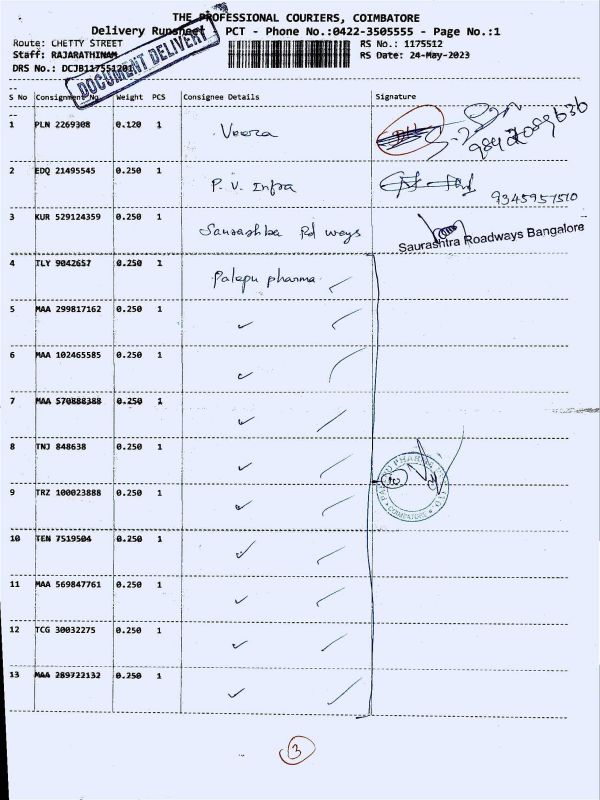 THE PROFESSIONAL COURIERS, COIMBATORE
Delivery Runsheet PCT - Phone No.:0422-3505555 - Page No.:1
Route: CHETTY STREET
RS No.: 1175512
Staff: RAJARATHINAM
RS Date: 24-May-2023
DRS No.: DCJB117551201
DOCUMENT DELIVERY
S No Consignment No. Weight PCS Consignee Details Signature
1 PLN 2269308 0.120 1 Veera
2 EDQ 21495545 0.250 1 P. V. Infra 9345957510
3 KUR 529124359 0.250 1 Saurashtra Rd ways
Saurashtra Roadways Bangalore
4 TLY 9042657 0.250 1 Palepu pharma
5 MAA 299817162 0.250 1
6 MAA 102465585 0.250 1
7 MAA 570888388 0.250 1
8 TNJ 848638 0.250 1
9 TRZ 100023888 0.250 1
COIMBATORE
10 TEN 7519504 0.250 1
11 MAA 569847761 0.250 1
12 TCG 30032275 0.250 1
13 MAA 289722132 0.250 1
3